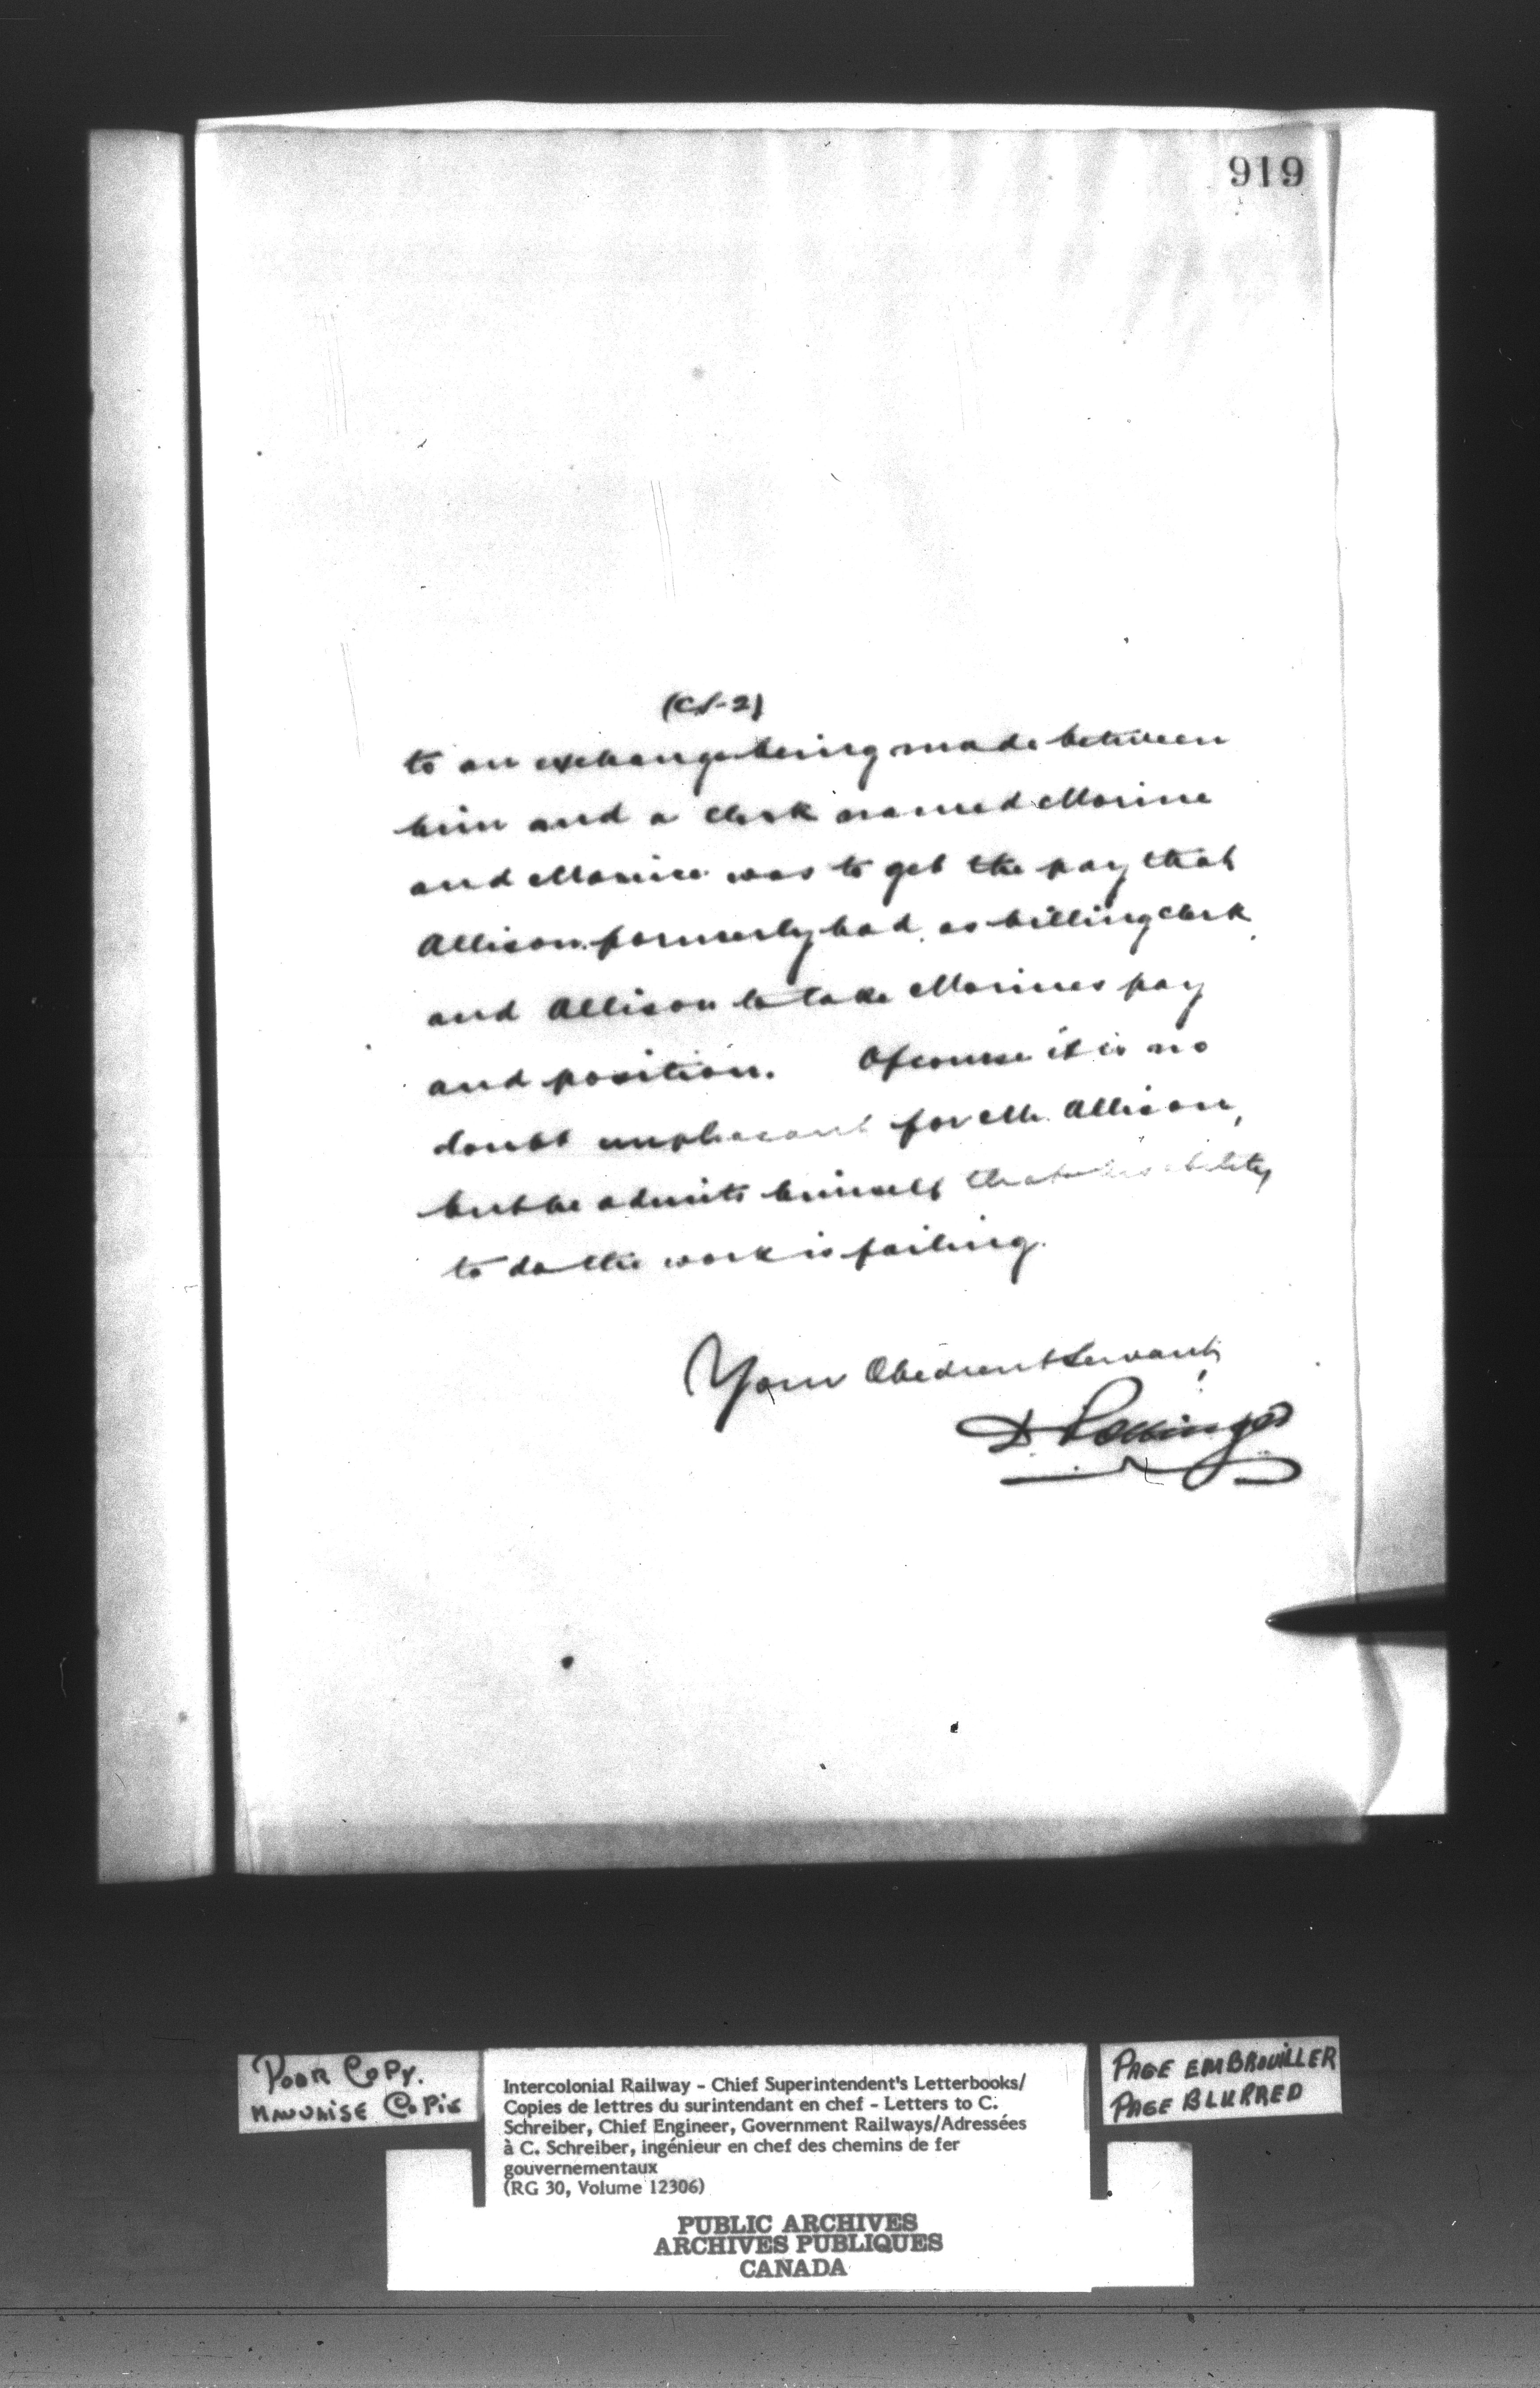 919
(CS-2)
to an exchange being made between
him and a clerk named Morine
and Morine was to get the pay that
Allison formerly had as billing clerk
and Allison to take Morines pay
and position. Of course it is no
doubt unpleasant for Mr. Allison,
but he admits himself that his ability
to do the work is failing.
Your Obedient Servant,
D Pottinger
POOR COPY.
MAUVAISE COPIE
Intercolonial Railway - Chief Superintendent's Letterbooks/
Copies de lettres du surintendant en chef - Letters to C.
Schreiber, Chief Engineer, Government Railways/Adressées
à C. Schreiber, ingénieur en chef des chemins de fer
gouvernementaux
(RG 30, Volume 12306)
PUBLIC ARCHIVES
ARCHIVES PUBLIQUES
CANADA
PAGE EMBROUILLER
PAGE BLURRED